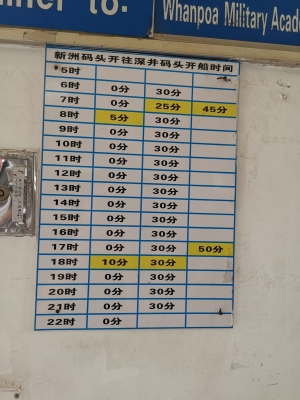 ner to:
Whanpoa Military Acad
新洲码头开往深井码头开船时间
5时
6时 0分 30分
7时 0分 25分 45分
8时 5分 30分
9时 0分 30分
10时 0分 30分
11时 0分 30分
12时 0分 30分
13时 0分 30分
14时 0分 30分
15时 0分 30分
16时 0分 30分
17时 0分 30分 50分
18时 10分 30分
19时 0分 30分
20时 0分 30分
21时 0分 30分
22时 0分